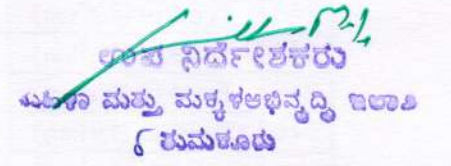 ಉಪ ನಿರ್ದೇಶಕರು
ಮಹಿಳಾ ಮತ್ತು ಮಕ್ಕಳಅಭಿವೃದ್ಧಿ ಇಲಾಖೆ
ತುಮಕೂರು